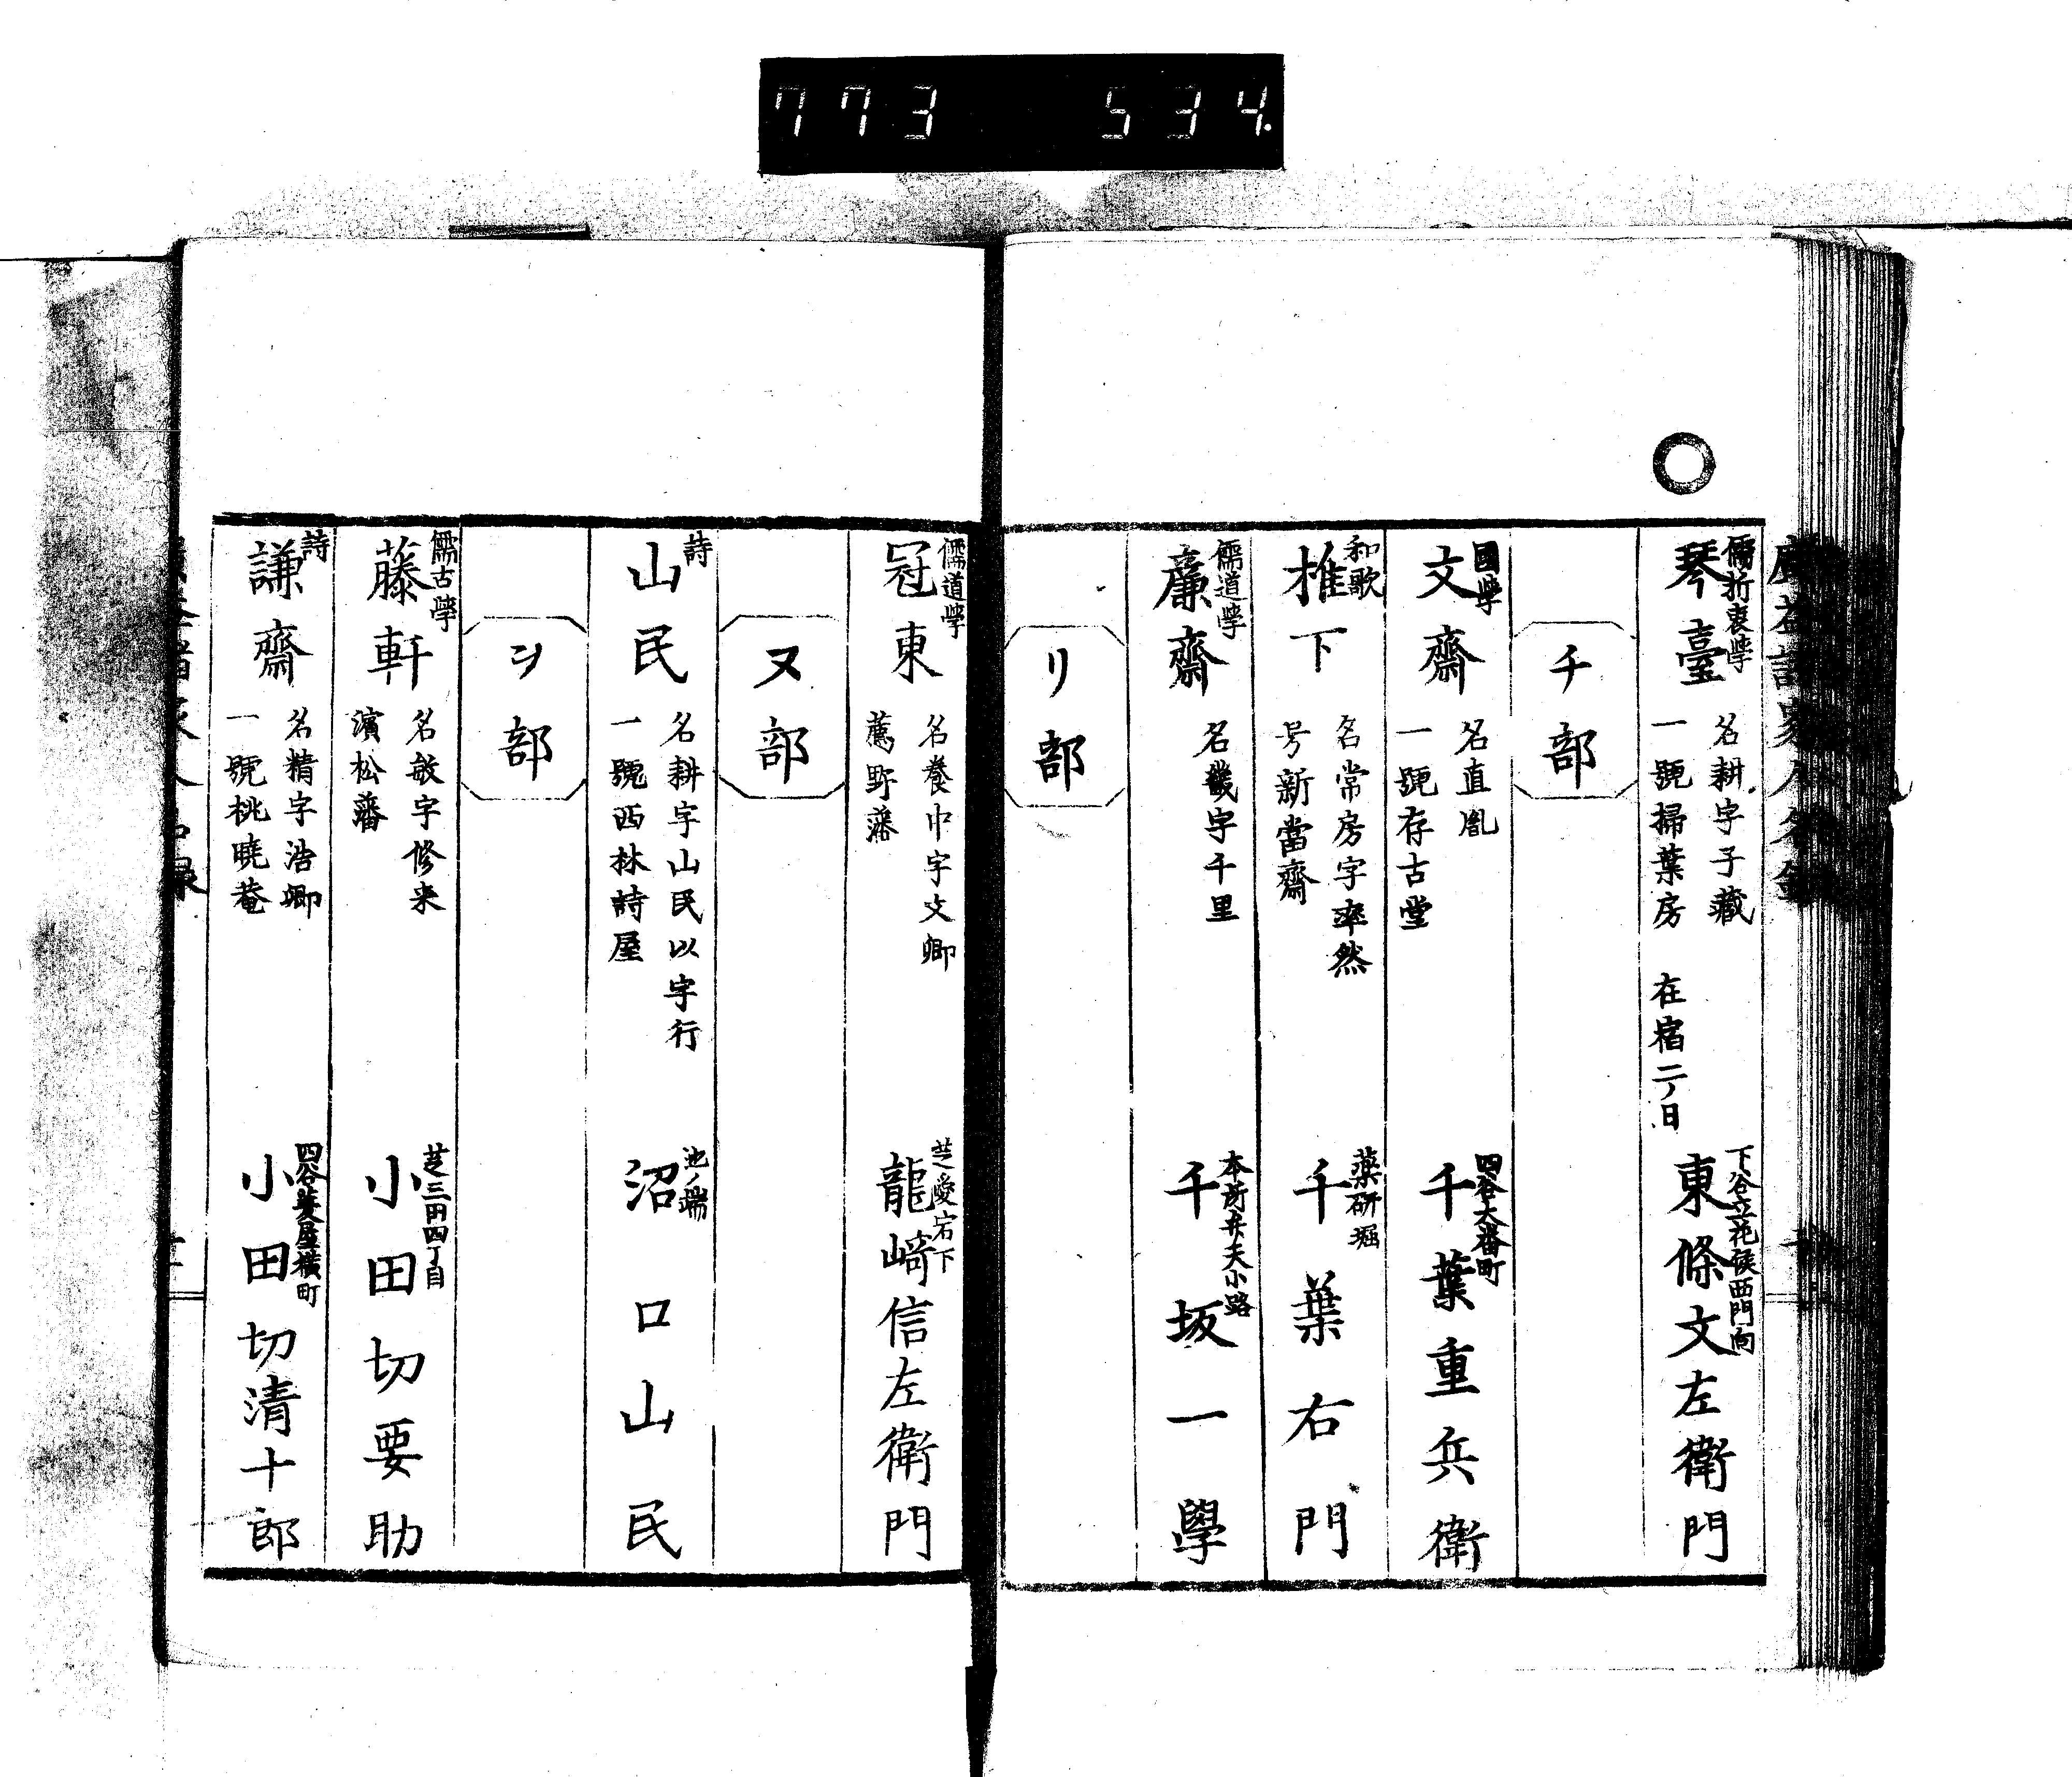 773 534
儒折衷學
琴臺
名耕字子藏
一號掃葉房 在宿二ノ日
下谷立花侯西門向
東條文左衛門
チ部
國學
文齋
名直胤
一號存古堂
四谷大番町
千葉重兵衛
和歌
椎下
名常房字率然
号新當齋
藥研堀
千葉右門
儒道學
廉齋
名畿字千里
本所弁天小路
千坂一學
リ部
儒道學
冠東
名養中字文卿
薦野藩
芝愛宕下
龍崎信左衛門
ヌ部
詩
山民
名耕字山民以字行
一號西林詩屋
池ノ端
沼口山民
ヲ部
儒古學
藤軒
名敏字修来
濱松藩
芝三田四丁目
小田切要助
詩
謙齋
名精字浩卿
一號桃曉菴
四谷簗屋橫町
小田切清十郎